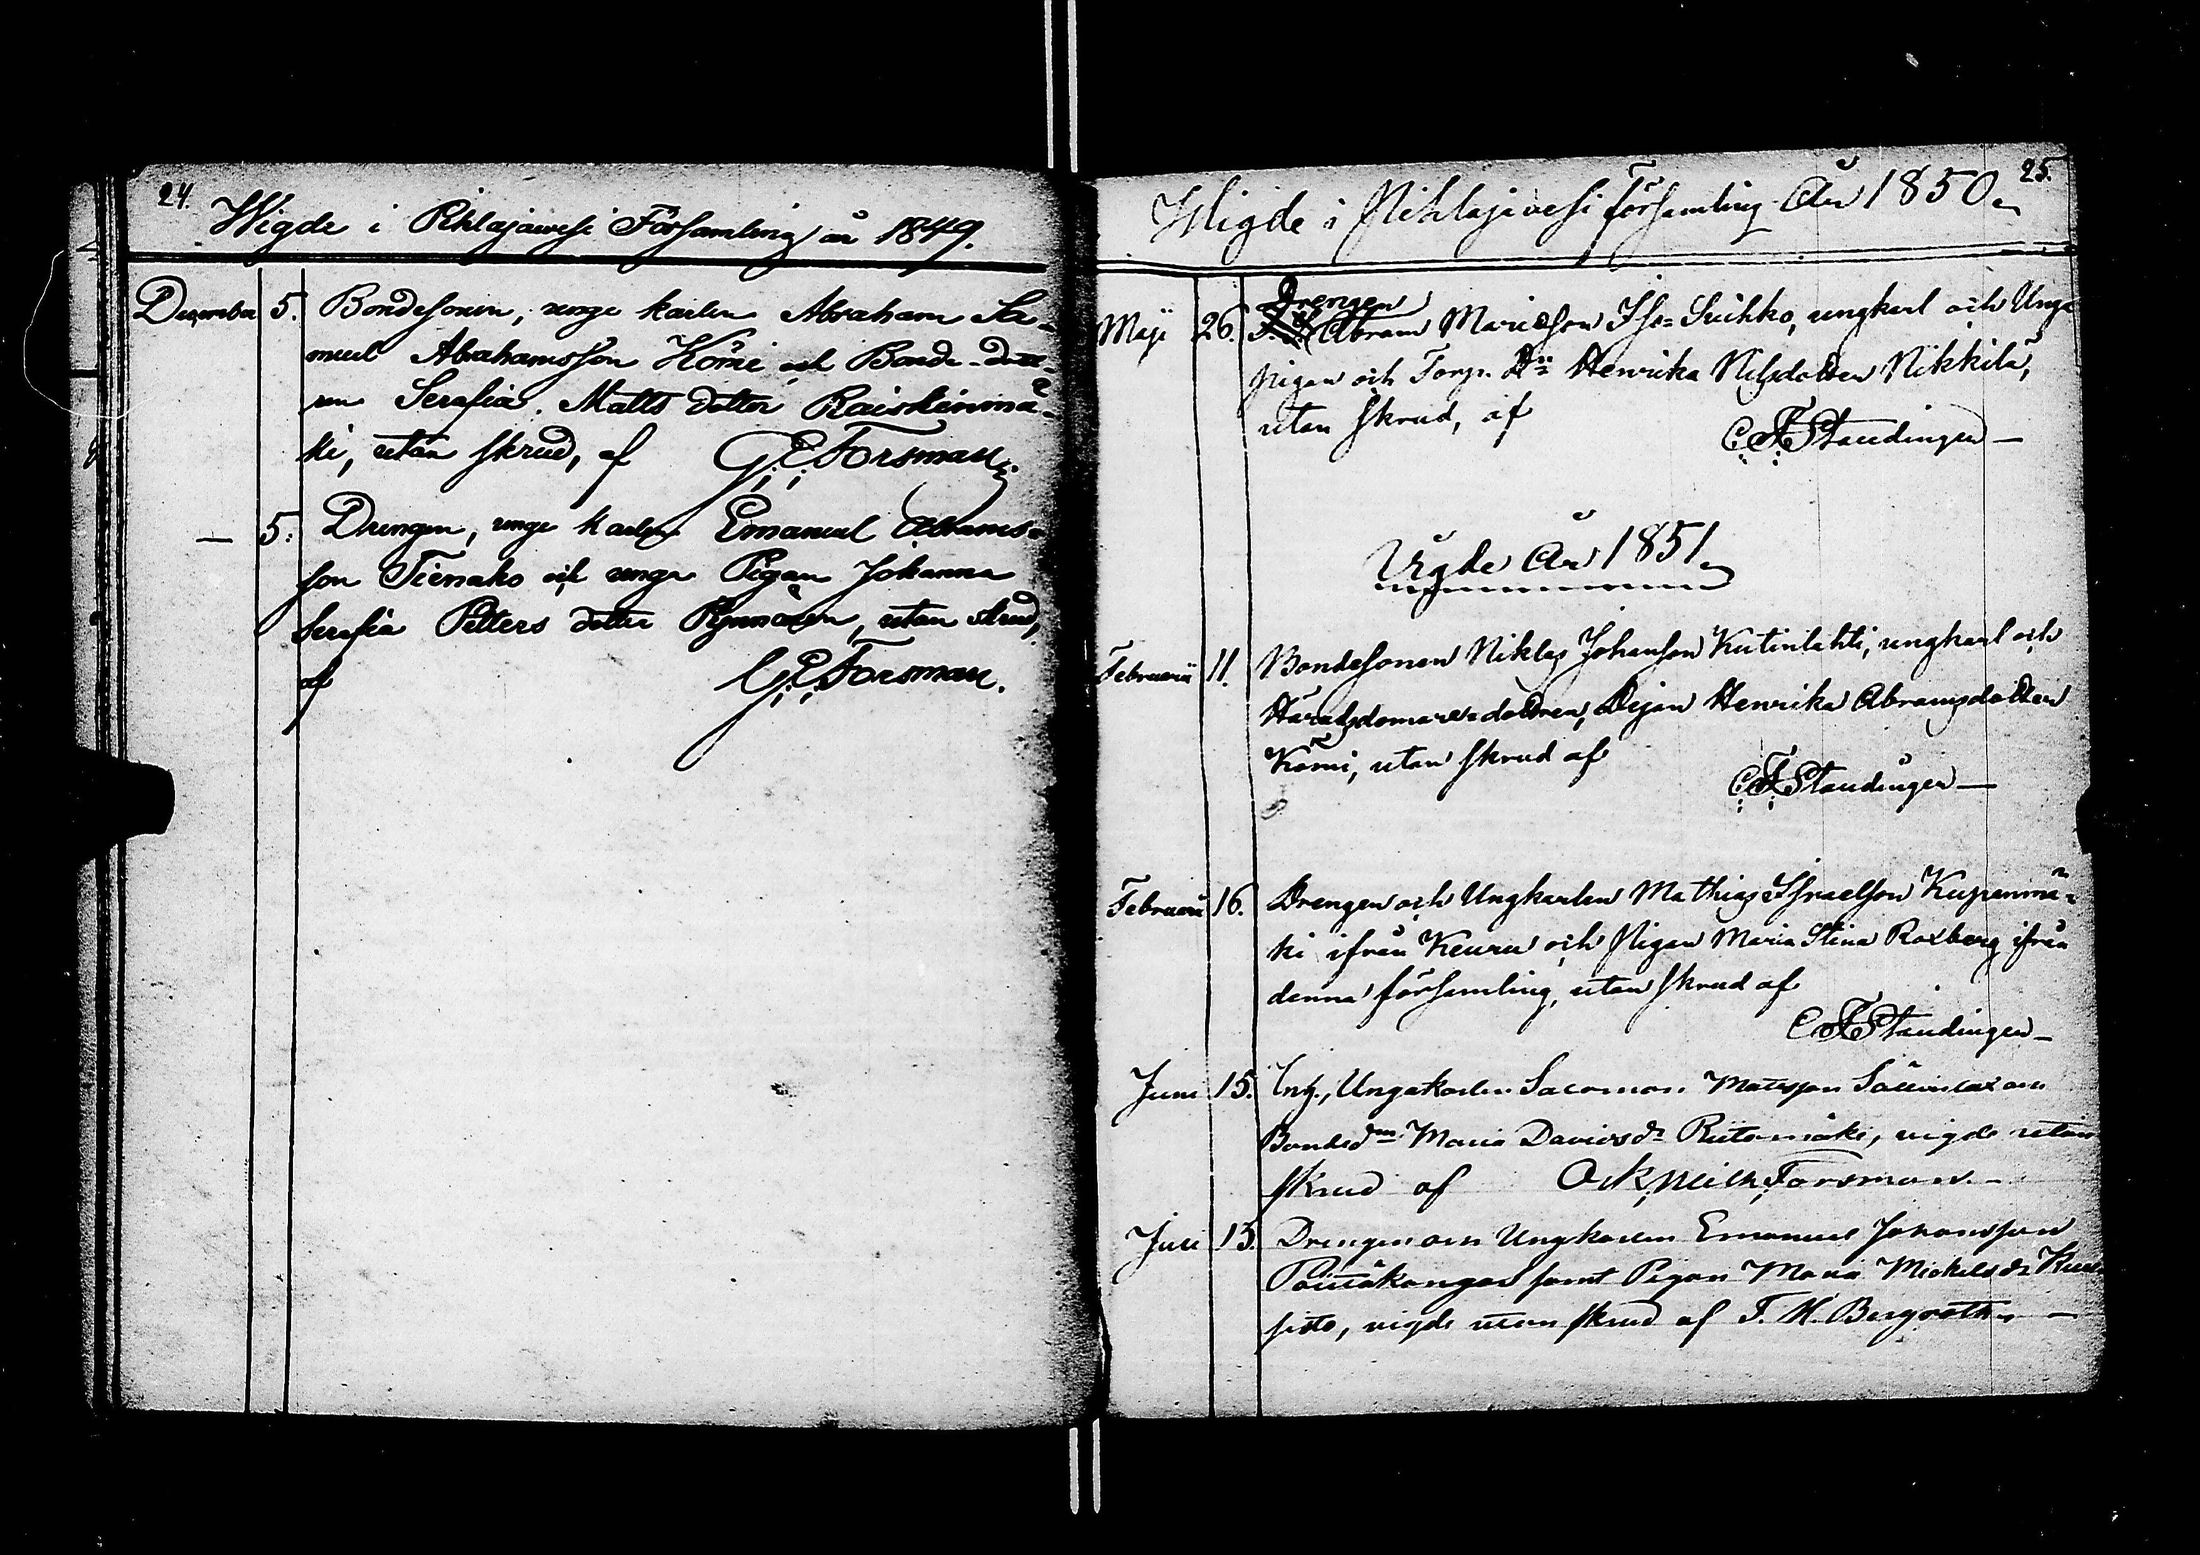 24.
Wigde i Pihlajawesi Församling år 1849.
December 5. Bondesonen, unge karlen Abraham Sa-
muel Abrahamsson Kömi och Bonde-dott-
ren Serafia Matts dotter Raiskinmä-
ki, utan skrud, af G. E. Forsman.
— 5. Drengen, unge karlen Emanuel Abrams-
son Tienako och unga Pigan Johanna
Serafia Petters dotter, utan skrud,
af G. E. Forsman.
25.
Wigde i Pihlajavesi församling År 1850
Maji 26. Drengen
Abram Mariæson Iso-Suihko, ungkarl och Unga
pigan och Torp. Dr Henrika Nilsdotter Nikkilä,
utan skrud, af
C. F. Staudinger —
Vigde År 1851
Februarii 11. Bondesonen Niklas Johanson Kutinlahti, ungkarl och
Häradsdomare-dottren, Pigan Henrika Abramsdotter
Kömi, utan skrud af
C. F. Staudinger —
Februarii 16. Drengen och Ungkarlen Mathias Israelson Kupenmä-
ki ifrån Keuru och Pigan Maria Stina Roxberg ifrån
denna församling, utan skrud af
C F Staudinger —
Juni 15. Inh., Ungakarlen Salomon Mattsson och
Bonded. Maria Davidsdr Riitamäki, vigde utan
skrud af Forsman. —
Juli 13. Drengen och Ungkarlen Emanuel Johansson
samt Pigan Maria Mickelsdr
sisto, vigde utan skrud af F. H. Bergroth. —